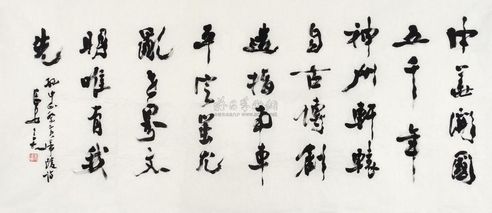 中華開國
五千年
神州軒轅
自古傳創
造指南車
平定蚩尤
亂世界文
明唯有我
先
孫中山